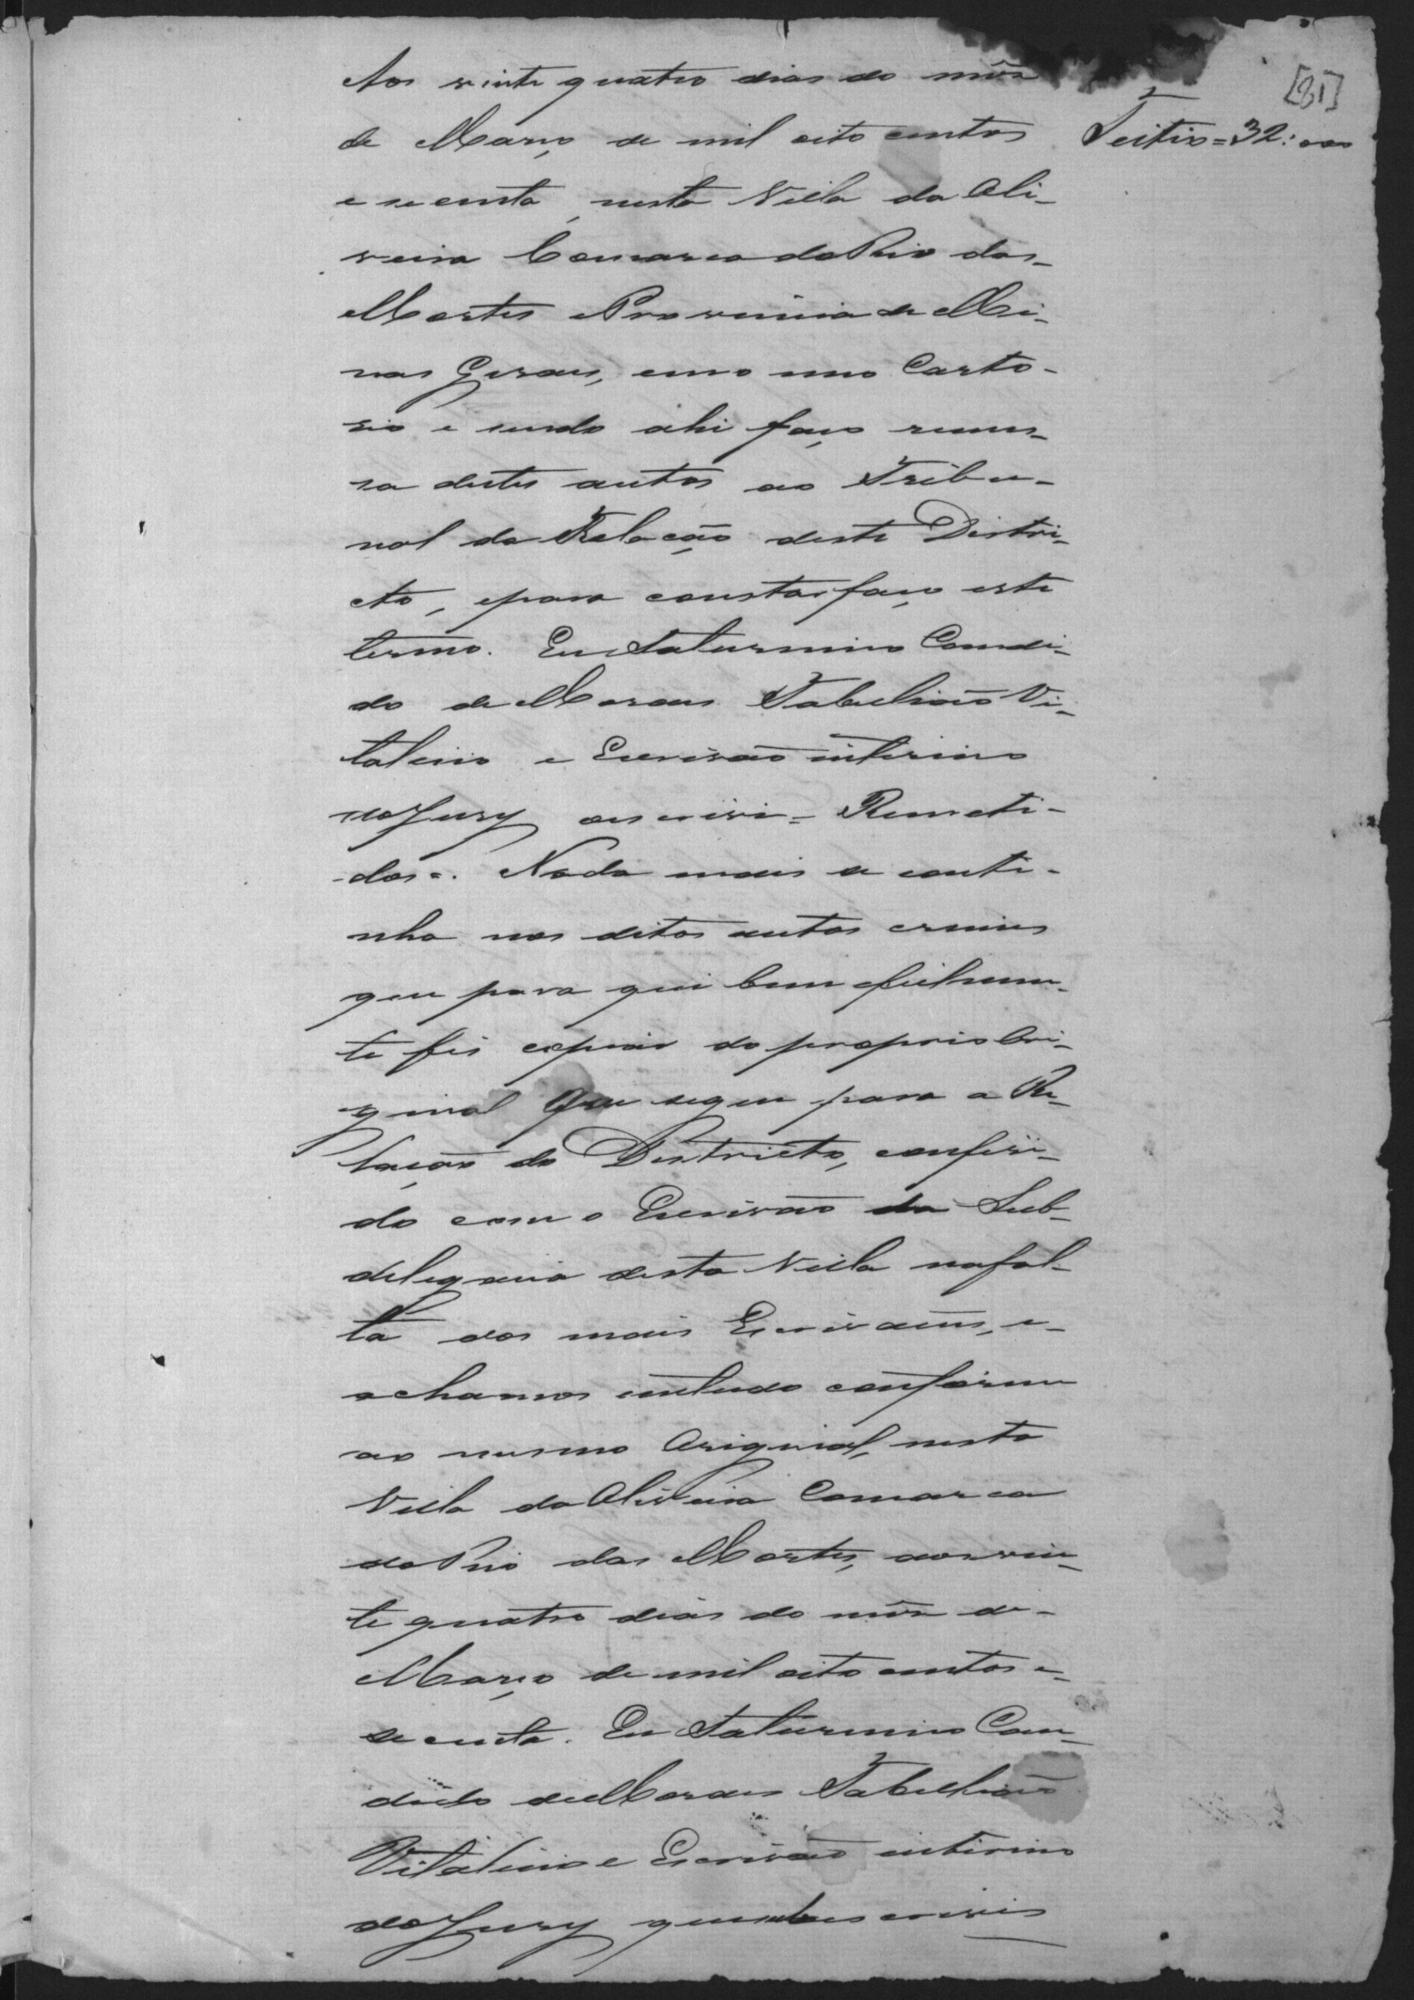 [81]
Feitio = 32:000
Aos vinte quatro dias do mês
de Março de mil oito centos
e secenta, nesta Villa da Oli-
veira Comarca do Rio das
Mortes Provincia de Mi-
nas Geraes, em o meo Carto-
rio e sendo ahi faço remes-
sa destes autos ao Tribu-
nal da Relação deste Distri-
cto, e para constar faço este
termo. Eu Saturnino Candi-
do de Moraes Tabelião Vi-
talicio e Escrivão interino
do Jury o escrivi = Remeti-
dos =. Nada mais se conti-
nha nos ditos autos crimes
que para qui bem e fielmen-
te fis copiar do proprio Ori-
ginal que segue para a Re-
lação do Districto, conferi-
do com o Escrivão da Sub-
delegacia desta Villa na fal-
ta dos mais Escrivães, e
achamos em tudo conforme
ao mesmo Original, nesta
Villa da Oliveira Comarca
do Rio das Mortes, aos vin-
te quatro dias do mês de
Março de mil oito centos e
secenta. Eu Saturnino Can-
dido de Moraes Tabelião
Vitalicio e Escrivão interino
do Jury que subescrivi